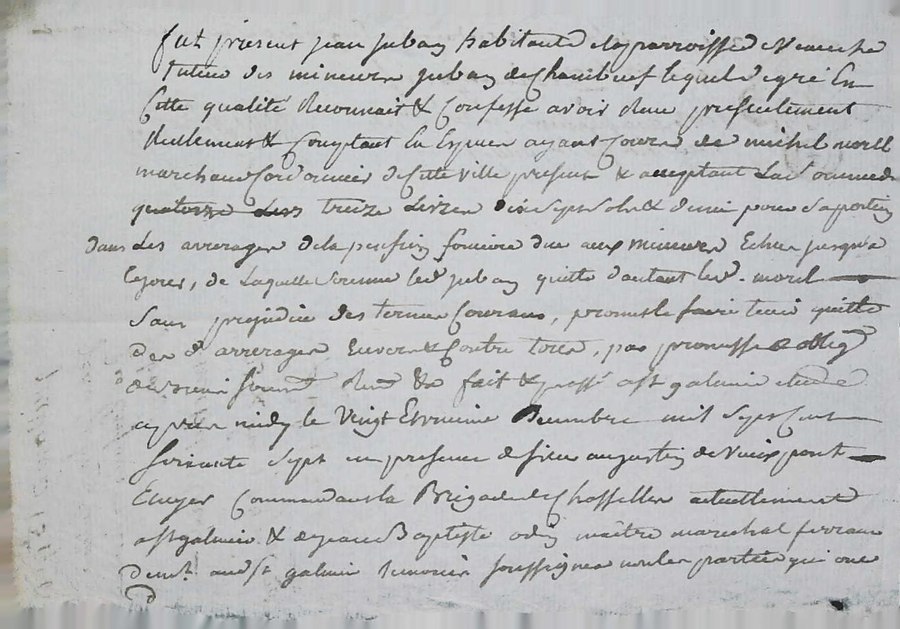 fut présent jean juban habitant de la parroisse de veauche
tuteur des mineurs juban de Chambeuf lequel de gré En
cette qualité Reconnait & Confesse avoir Receu presentement
Reellement & Comptant En Espesses ayant Cours de michel morel
marchand Cordonnier de cette ville present & acceptant La somme de
quatorze livres treize Livres dix sept sols & demi pour sa portion
dans Les arrerages de la pension fonciere due aux mineurs Echus jusqu'a
ce jour, de Laquelle somme led. juban quitte d'autant led. morel
Sans prejudice des termes Courans, promet le faire tenir quitte
des d. arrerages Envers & Contre tous, par promesse & oblig.
serment Ren. &a fait & passé a st galmier etude
apres midy le Vingt Decembre mil sept Cent
soixante sept en presence de sieur augustin de Vieuxpont
Ecuyer Commandant la Brigade de Chasselles actuellement
a st galmier & de jean Baptiste odin maitre marechal ferrand
demt. aud. st galmier temoins soussignés non les parties qui ont